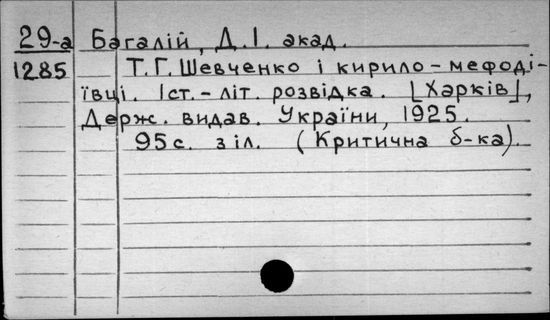 29-а Багалій, Д.І. акад.
1285 Т.Г. Шевченко і кирило-мефоді-
ївці. Іст.-літ. розвідка. [Харків],
Держ. видав. України, 1925.
95 с. з іл. (Критична б-ка).